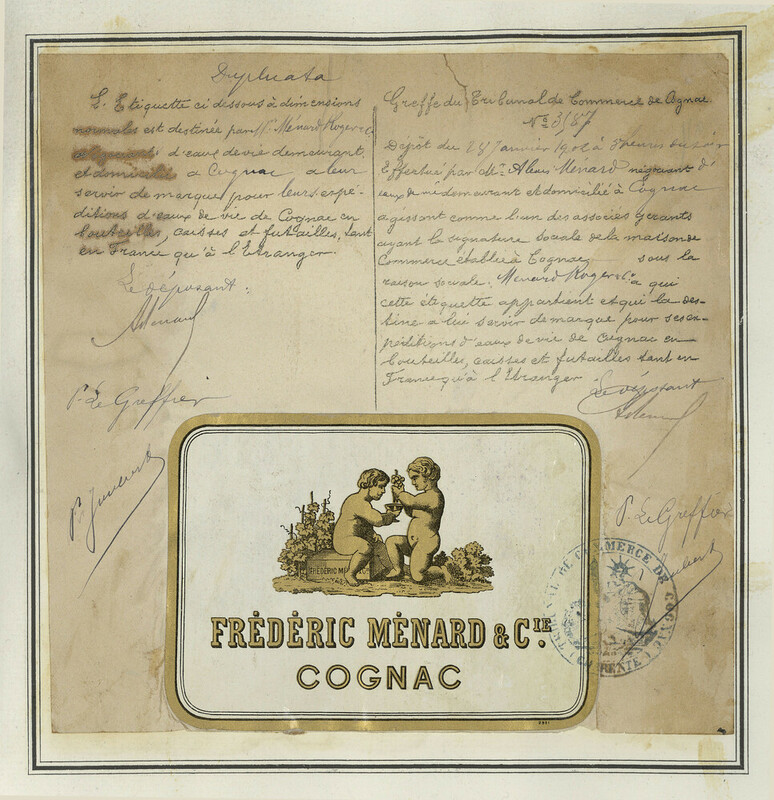 Duplicata
L'Etiquette ci dessous à dimensions
normales est destinée par Mr Ménard Roger & Cie
négociants d'eaux de vie demeurant
et domiciliés à Cognac à leur
servir de marque pour leurs expé-
ditions d'eaux de vie de Cognac en
bouteilles, caisses et futailles, tant
en France qu'à l'Etranger.
Le déposant:
AMénard
P. Le Greffier
Greffe du Tribunal de Commerce de Cognac
No 3587
Dépôt du 28 Janvier 190 à heures du soir
Effectué par Mr. Alexis Ménard négociant d'
eaux de vie demeurant et domicilié à Cognac
agissant comme l'un des associés gérants
ayant la signature sociale de la maison de
Commerce établie à Cognac sous la
raison sociale: Ménard Roger & Cie à qui
cette étiquette appartient et qui la des-
tine à lui servir de marque pour ses ex-
péditions d'eaux de vie de Cognac en
bouteilles, caisses et futailles tant en
France qu'à l'Etranger.
Le déposant
AMénard
P. Le Greffier
FREDERIC
FRÉDÉRIC MÉNARD & CIE.
COGNAC
TRIBUNAL DE COMMERCE DE COGNAC
(CHARENTE)